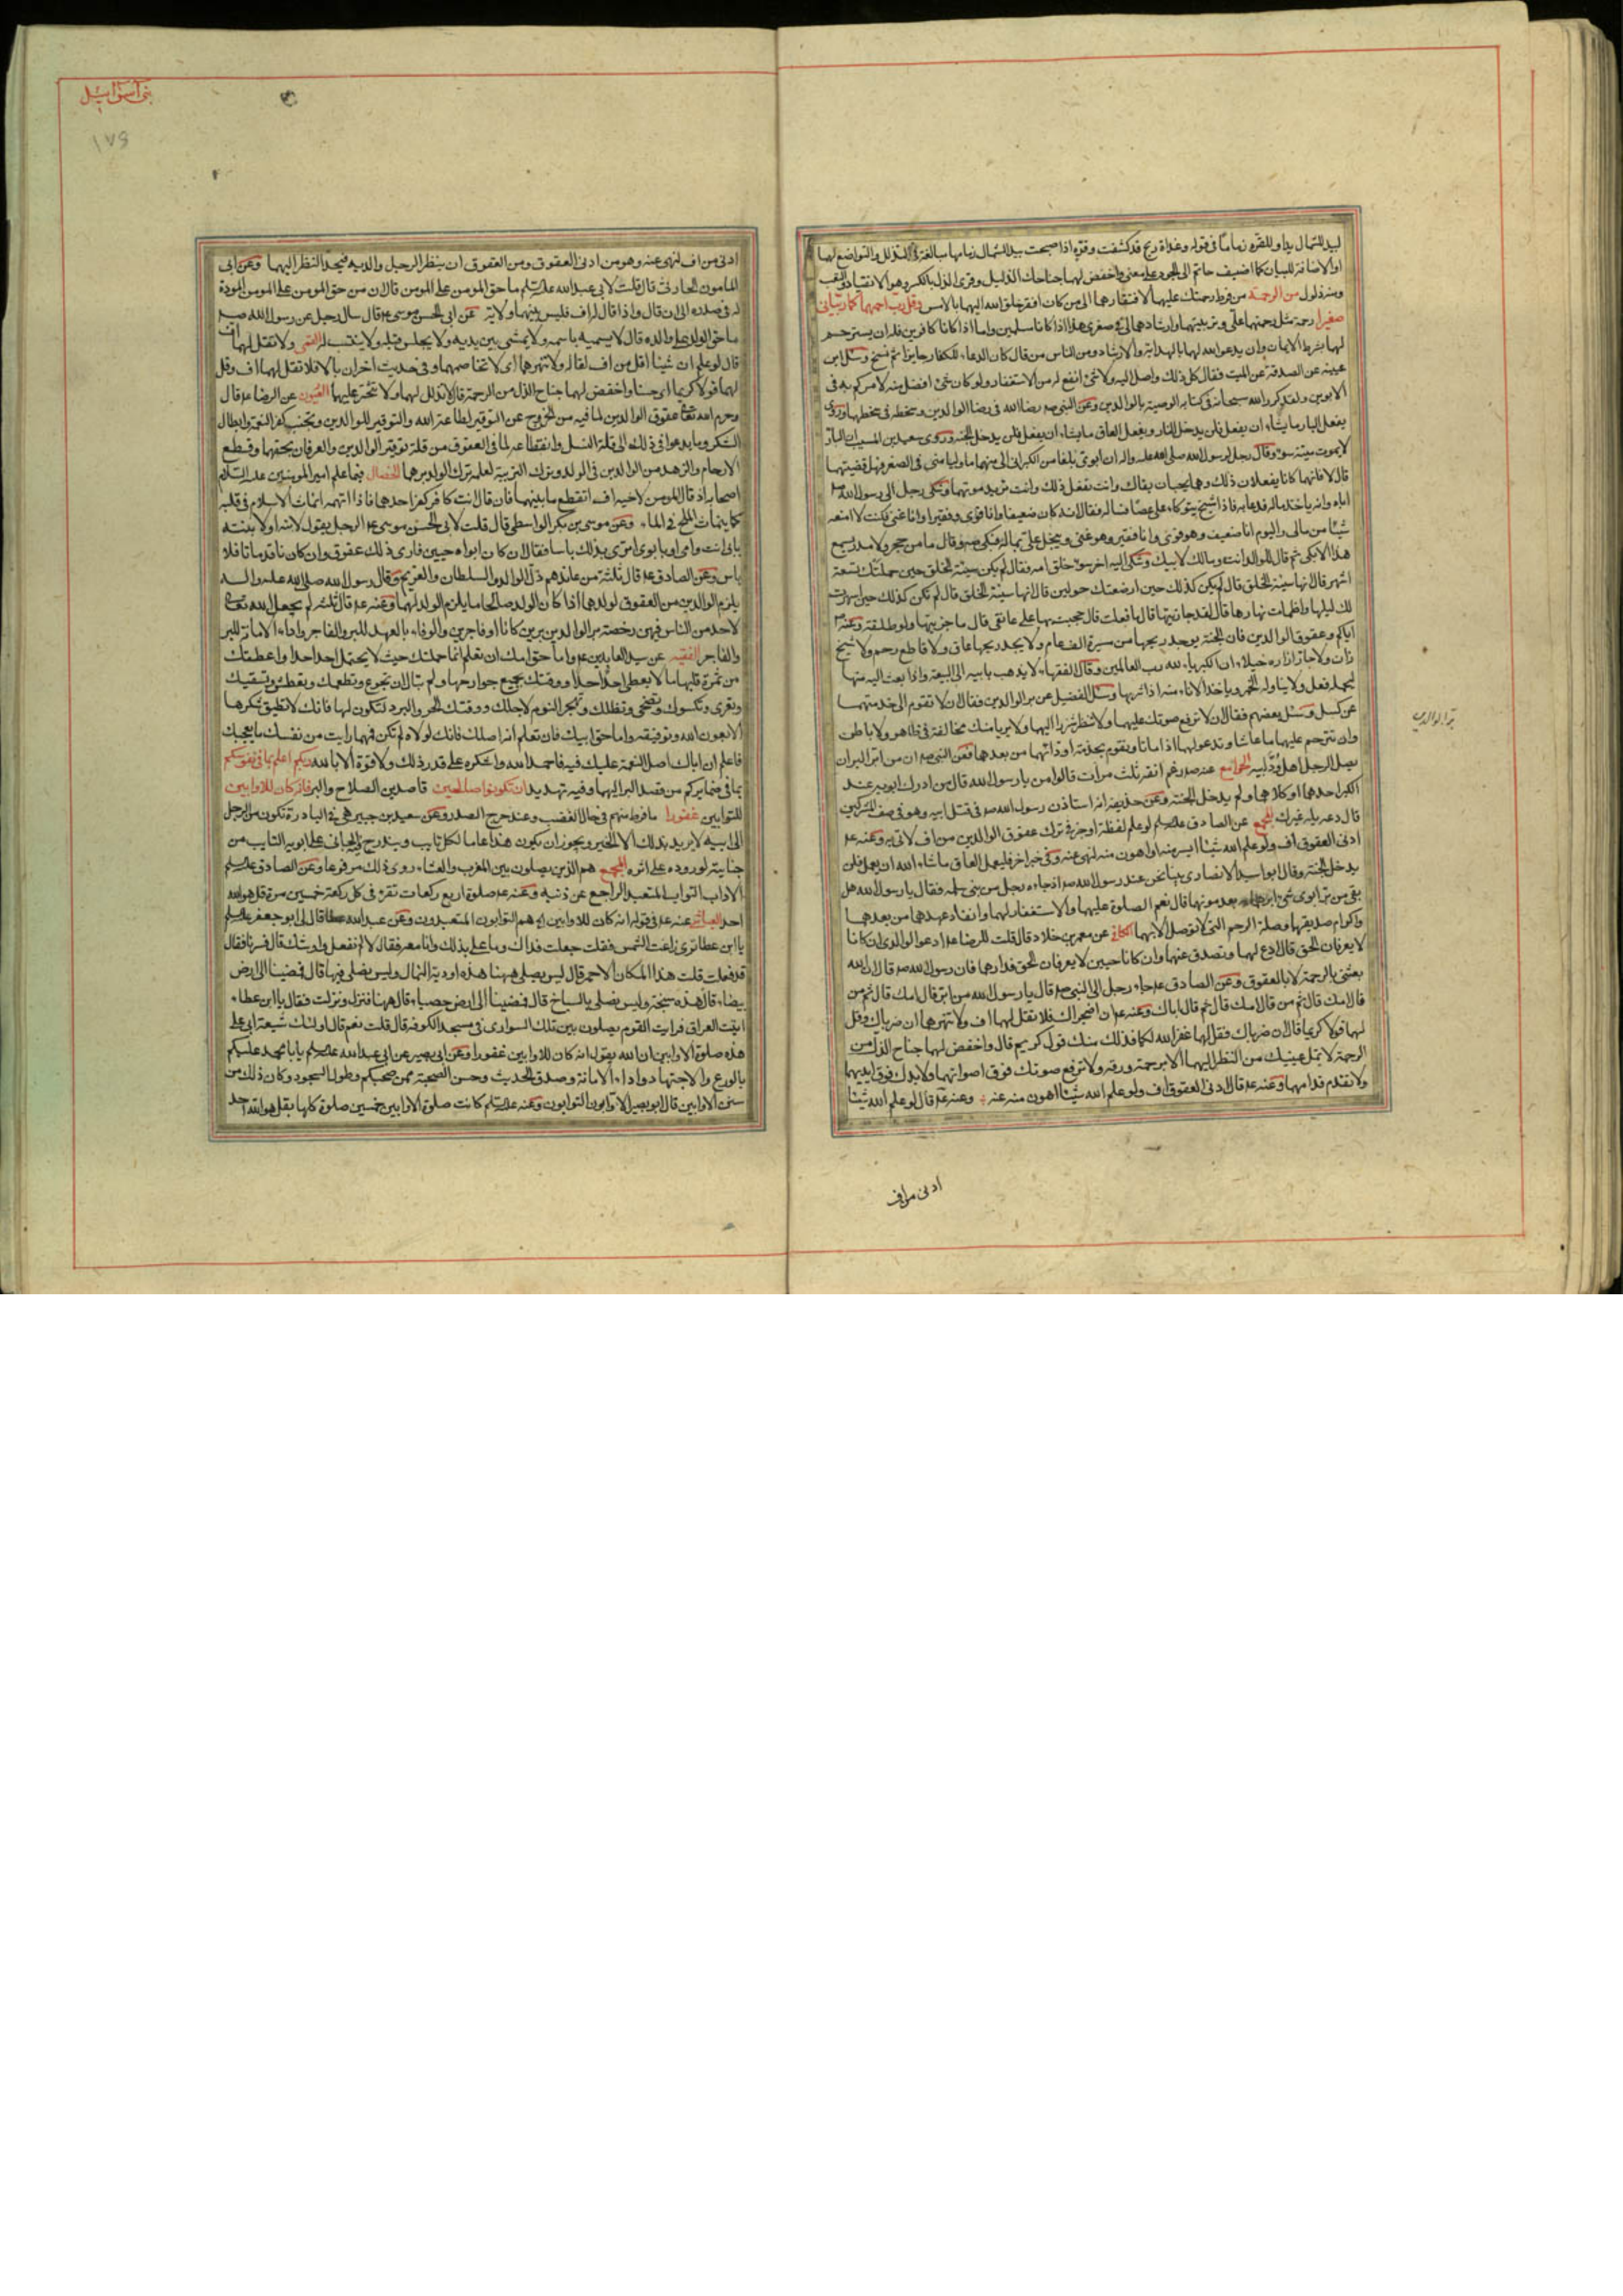 لبيد للشمال يدا وللقرة زماما في قوله وغداة ريح قد كشفت وقرة اذا اصبحت بيد الشمال زمامها مبالغة في التذلل والتواضع لهما
او الاضافة للبيان كما اضيف حاتم الى الجود على معنى واخفض لهما جناحك الذليل وقرئ الذل بالكسر وهو الانقياد
ومنه ذلول من الرحمة من فرط رحمتك عليهما لافتقارهما الى من كان افقر خلق الله اليهما بالامس وقل رب ارحمهما كما ربياني
صغيرا رحمة مثل رحمتهما علي وتربيتهما وارشادهما لي في صغري هذا اذا كانا مسلمين واما اذا كانا كافرين فله ان يسترحم
لهما بشرط الايمان وان يدعو الله لهما بالهداية والارشاد ومن الناس من قال كان الدعاء للكفار جايزا ثم نسخ وسئل ابن
عيينة عن الصدقة عن الميت فقال كل ذلك واصل اليه ولا شئ انفع له من الاستغفار ولو كان شئ افضل منه لامركم به في
الابوين ولقد كرر الله سبحانه في كتابه الوصية بالوالدين وعن النبي صم رضا الله في رضا الوالدين وسخطه في سخطهما وروى
يفعل البار ما يشاء ان يفعل فلن يدخل النار ويفعل العاق ما يشاء ان يفعل فلن يدخل الجنة وروى سعيد بن المسيب ان البار
لا يموت ميتة سوء وقال رجل لرسول الله صلى الله عليه واله ان ابوي بلغا من الكبر اني الي منهما ما وليا مني في الصغر فهل قضيتهما
قال لا فانهما كانا يفعلان ذلك وهما يحبان بقاك وانت تفعل ذلك وانت تريد موتهما وشكى رجل الى رسول الله صم
اباه وانه ياخذ ماله فدعا به فاذا شيخ يتوكاء على عصا فساله فقال انه كان ضعيفا وانا قوي وفقيرا وانا غني فكنت لا امنعه
شيئا من مالي واليوم انا ضعيف وهو قوي وانا فقير وهو غني ويبخل علي بماله فبكى صم وقال ما من حجر ولا مدر يسمع
هذا الا بكى ثم قال للولد انت ومالك لابيك وشكى اليه اخر سوء خلق امه فقال لم يكن سيئة الخلق حين حملتك تسعة
اشهر قال انها سيئة الخلق قال لم يكن كذلك حين ارضعتك حولين قال انها سيئة الخلق قال لم تكن كذلك حين اسهرت
لك ليلها واظمات نهارها قال لقد جازيتها قال ما فعلت قال حججت بها على عاتقي قال ما جزيتها ولو طلقة وعنه صم
اياكم وعقوق الوالدين فان الجنة يوجد ريحها من مسيرة الف عام ولا يجد ريحها عاق ولا قاطع رحم ولا شيخ
زان ولا جار ازاره خيلاء ان الكبرياء لله رب العالمين وقال الفقهاء لا يذهب بابيه الى البيعة واذا بعث اليه منها
ليحمله فعل ولا يناوله الخمر وياخذ الاناء منه اذا شربها وسئل الفضيل عن بر الوالدين فقال ان لا تقوم الى خدمتهما
عن كسل وسئل بعضهم فقال ان لا ترفع صوتك عليهما ولا تنظر شزرا اليهما ولا يريا منك مخالفة في ظاهر ولا باطن
وان تترحم عليهما ما عاشا وتدعو لهما اذا ماتا وتقوم بخدمة اودائهما من بعدهما فعن النبي صم ان من ابر البر ان
يصل الرجل اهل ود ابيه الجوامع عنه صم رغم انفه ثلث مرات قالوا من يا رسول الله قال من ادرك ابويه عند
الكبر احدهما او كلاهما ولم يدخل الجنة وعن حذيفة انه استاذن رسول الله صم في قتل ابيه وهو في صف المشركين
قال دعه يليه غيرك المجمع عن الصادق علم لو علم لفظة اوجز في ترك عقوق الوالدين من اف لاتى به وعنه عم
ادنى العقوق اف ولو علم الله شيئا ايسر منه او اهون منه لنهى عنه وفي خبر اخر فليعمل العاق ما شاء الله ان يعمل فلن
يدخل الجنة وقال ابو اسيد الانصاري بينا نحن عند رسول الله صم اذ جاءه رجل من بني سلمة فقال يا رسول الله هل
بقي من بر ابوي شئ ابرهما به بعد موتهما قال نعم الصلوة عليهما والاستغفار لهما وانفاذ عهدهما من بعدهما
واكرام صديقهما وصلة الرحم التي لا توصل الا بهما الكافي عن معمر بن خلاد قال قلت للرضا عم ادعو لوالدي ان كانا
لا يعرفان الحق قال ادع لهما وتصدق عنهما وان كانا حيين لا يعرفان الحق فدارهما فان رسول الله صم قال ان الله
بعثني بالرحمة لا بالعقوق وعن الصادق عم جاء رجل الى النبي صم قال يا رسول الله من ابر قال امك قال ثم من
قال امك قال ثم من قال امك قال ثم من قال اباك وعنه عم ان اضجراك فلا تقل لهما اف ولا تنهرهما ان ضرباك وقل
لهما قولا كريما قال ان ضرباك فقل لهما غفر الله لكما فذلك منك قول كريم قال واخفض لهما جناح الذل من
الرحمة لا تمل عينيك من النظر اليهما الا برحمة ورقة ولا ترفع صوتك فوق اصواتهما ولا يدك فوق ايديهما
ولا تقدم قدامهما وعنه عم قال ادنى العقوق اف ولو علم الله شيئا اهون منه عنه وعنه عم قال لو علم الله شيئا
بر الوالدين
ادنى من اف
بني اسرائيل
١٧٩
ادنى من اف لنهى عنه وهو من ادنى العقوق ومن العقوق ان ينظر الرجل والديه فيحد النظر اليهما وعن ابي
المامون الحارثي قال قلت لابي عبد الله علم ما حق المومن على المومن قال ان من حق المومن على المومن المودة
له في صدره الى ان قال واذا قال له اف فليس بينهما ولاية عن ابي الحسن موسى عم قال سال رجل عن رسول الله صم
ما حق الوالد على والده قال لا يسميه باسمه ولا يمشي بين يديه ولا يجلس قبله ولا يتسب له القمي ولا تقل لهما اف
قال لو علم ان شيئا اقل من اف لقاله ولا تنهرهما اي لا تخاصمهما وفي حديث اخر ان بالا فلا تقل لهما اف وقل
لهما قولا كريما اي حسنا واخفض لهما جناح الذل من الرحمة قال تذلل لهما ولا تتجبر عليهما العيون عن الرضا عم قال
وحرم الله تعالى عقوق الوالدين لما فيه من الخروج عن التوقير لطاعة الله والتوقير للوالدين وتجنب كفر النعمة وابطال
الشكر وما يدعو في ذلك الى قلة النسل وانقطاعه لما في العقوق من قلة توقير الوالدين والعرفان بحقهما وقطع
الارحام والزهد من الوالدين في الولد وترك التربية لعلة ترك الولد برهما الخصال فيما علم امير المومنين عليه السلام
اصحابه اذ قال المومن لاخيه اف انقطع ما بينهما فان قال انت كافر كفر احدهما فاذا اتهمه انماث الاسلام في قلبه
كما ينماث الملح في الماء وعن موسى بن بكر الواسطي قال قلت لابي الحسن موسى عم الرجل يقول لابنه او لابنته
بابي انت وامي او بابوي اترى بذلك باسا فقال ان كان ابواه حيين فارى ذلك عقوقا وان كان قد ماتا فلا
باس وعن الصادق عم قال ثلثة من عازهم ذل الوالد والسلطان والغريم وقال رسول الله صلى الله عليه واله
يلزم الوالدين من العقوق لولدهما اذا كان الولد صالحا ما يلزم الولد لهما وعنه عم قال ثلثة لم يجعل الله تعالى
لاحد من الناس فيهن رخصة بر الوالدين برين كانا او فاجرين والوفاء بالعهد للبر والفاجر واداء الامانة للبر
والفاجر الفقيه عن سيد العابدين عم واما حق امك ان تعلم انها حملتك حيث لا يحتمل احد احدا واعطتك
من ثمرة قلبها ما لا يعطي احد احدا ووقتك بجميع جوارحها ولم تبال ان تجوع وتطعمك وتعطش وتسقيك
وتعرى وتكسوك وتضحى وتظلك وتهجر النوم لاجلك ووقتك الحر والبرد لتكون لها فانك لا تطيق شكرها
الا بعون الله وتوفيقه واما حق ابيك فان تعلم انه اصلك فانك لولاه لم تكن فمهما رايت من نفسك ما يعجبك
فاعلم ان اباك اصل النعمة عليك فيه فاحمد الله واشكره على قدر ذلك ولا قوة الا بالله ربكم اعلم بما في نفوسكم
بما في ضمايركم من قصد البر اليهما وفيه تهديد ان تكونوا صالحين قاصدين الصلاح والبر فانه كان للاوابين
للتوابين غفورا ما فرط منهم في حال الغضب وعند حرج الصدر وعن سعيد بن جبير هي في البادرة تكون من الرجل
الى ابيه لا يريد بذلك الا الخير ويجوز ان يكون هذا عاما لكل تايب ويندرج فيه الجاني على ابويه التايب من
جنايته لوروده على اثره المجمع هم الذين يصلون بين المغرب والعشاء روي ذلك مرفوعا وعن الصادق علم
الاواب التواب المتعبد الراجع عن ذنبه وعنه عم صلوة اربع ركعات تقرء في كل ركعة خمسين مرة قل هو الله
احد العياشي عنه عم في قوله انه كان للاوابين اه هم التوابون المتعبدون وعن عبد الله بن عطا قال لي ابو جعفر علم
يا ابن عطا ترى زاغت الشمس فقلت جعلت فداك وما علمي بذلك وانا معك فقال لا لم تفعل واوشك قال فسرنا فقال
قد فعلت قلت هذا المكان الاحمر قال ليس يصلي ههنا هذه اودية النمال وليس يصلى فيها قال فمضينا الى ارض
بيضاء قال هذه سبخة وليس يصلي بالسباخ قال فمضينا الى ارض حصباء قال ههنا فنزل ونزلت فقال يا ابن عطاء
اتيت العراق فرايت القوم يصلون بين تلك السواري في مسجد الكوفة قال قلت نعم قال اولئك شيعة ابي علي
هذه صلوة الاوابين ان الله يقول انه كان للاوابين غفورا وعن ابي بصير عن ابي عبد الله علم يا با محمد عليكم
بالورع والاجتهاد واداء الامانة وصدق الحديث وحسن الصحبة لمن صحبكم وطول السجود وكان ذلك من
سنن الاوابين قال ابو بصير الاوابون التوابون وعنه علم كانت صلوة الاوابين خمسين صلوة كلها بقل هو الله احد